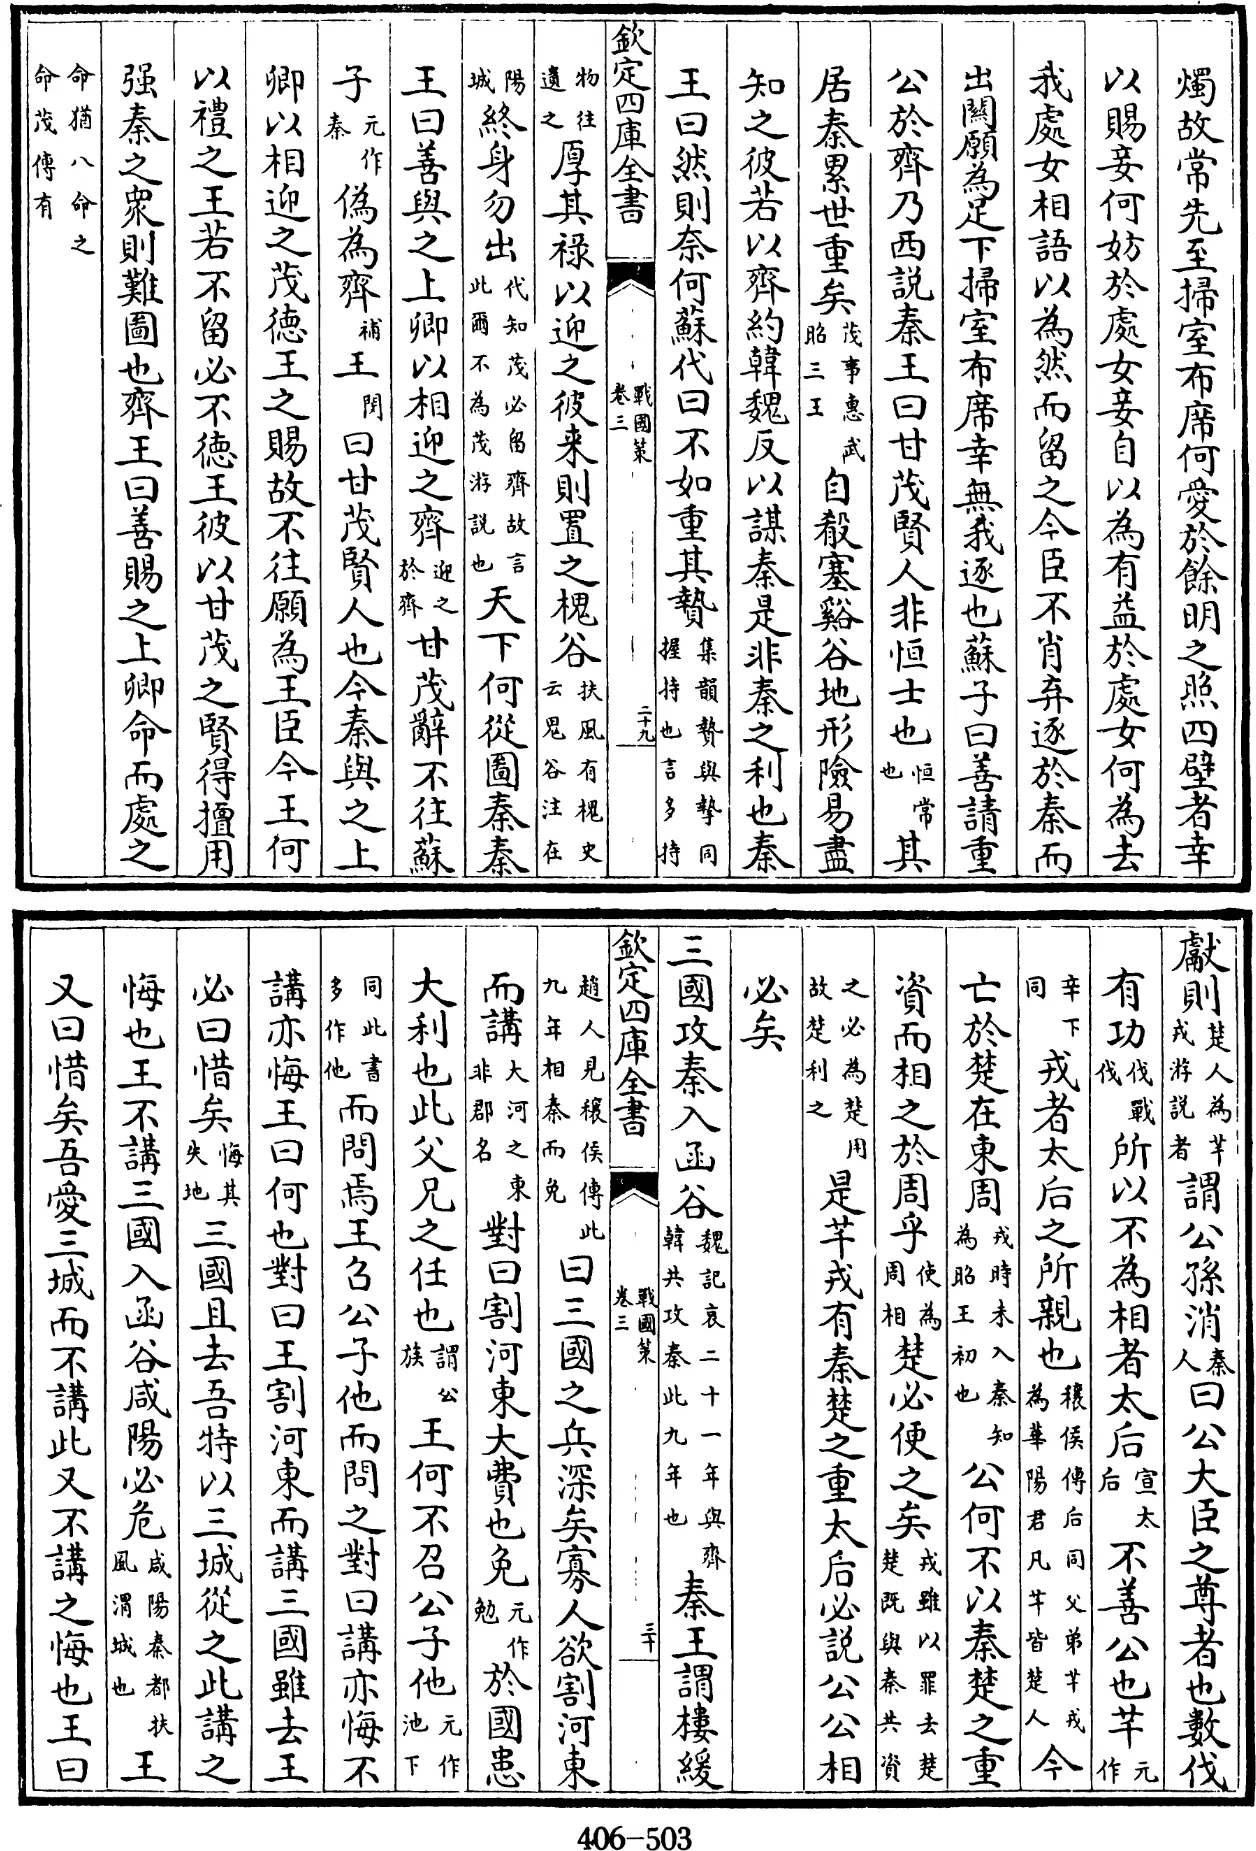 燭故常先至掃室布席何愛於餘明之照四壁者幸
以賜妾何妨於處女妾自以為有益於處女何為去
我處女相語以為然而留之今臣不肖弃逐於秦而
出關願為足下掃室布席幸無我逐也蘇子曰善請重
公於齊乃西説秦王曰甘茂賢人非恒士也恒常也其
居秦累世重矣茂事惠武昭三王自殽塞谿谷地形險易盡
知之彼若以齊約韓魏反以謀秦是非秦之利也秦
王曰然則奈何蘇代曰不如重其贄集韻贄與摯同握持也言多持
欽定四庫全書
戰國策
卷三
二十九
物往遺之厚其祿以迎之彼来則置之槐谷扶風有槐史云鬼谷注在
陽城終身勿出代知茂必留齊故言此爾不為茂游説也天下何從圖秦秦
王曰善與之上卿以相迎之齊迎之於齊甘茂辭不往蘇
子元作秦偽為齊補王閔曰甘茂賢人也今秦與之上
卿以相迎之茂德王之賜故不往願為王臣今王何
以禮之王若不留必不德王彼以甘茂之賢得擅用
强秦之衆則難圖也齊王曰善賜之上卿命而處之
命猶八命之命茂傳有
獻則楚人為芊戎游説者謂公孫消秦人曰公大臣之尊者也數伐
有功伐戰伐所以不為相者太后宣太后不善公也芊元作
辛下同戎者太后之所親也穰侯傳后同父弟芊戎為華陽君凡芊皆楚人今
亡於楚在東周戎時未入秦知為昭王初也公何不以秦楚之重
資而相之於周乎使為周相楚必便之矣戎雖以罪去楚楚既與秦共資
之必為楚用故楚利之是芊戎有秦楚之重太后必説公公相
必矣
三國攻秦入函谷魏記哀二十一年與齊韓共攻秦此九年也秦王謂樓緩
欽定四庫全書
戰國策
卷三
三十
趙人見穰侯傳此九年相秦而免曰三國之兵深矣寡人欲割河東
而講大河之東非郡名對曰割河東大費也免元作勉於國患
大利也此父兄之任也謂公族王何不召公子他元作池下
同此書多作他而問焉王召公子他而問之對曰講亦悔不
講亦悔王曰何也對曰王割河東而講三國雖去王
必曰惜矣悔其失地三國且去吾特以三城從之此講之
悔也王不講三國入函谷咸陽必危咸陽秦都扶風渭城也王
又曰惜矣吾愛三城而不講此又不講之悔也王曰
406-503